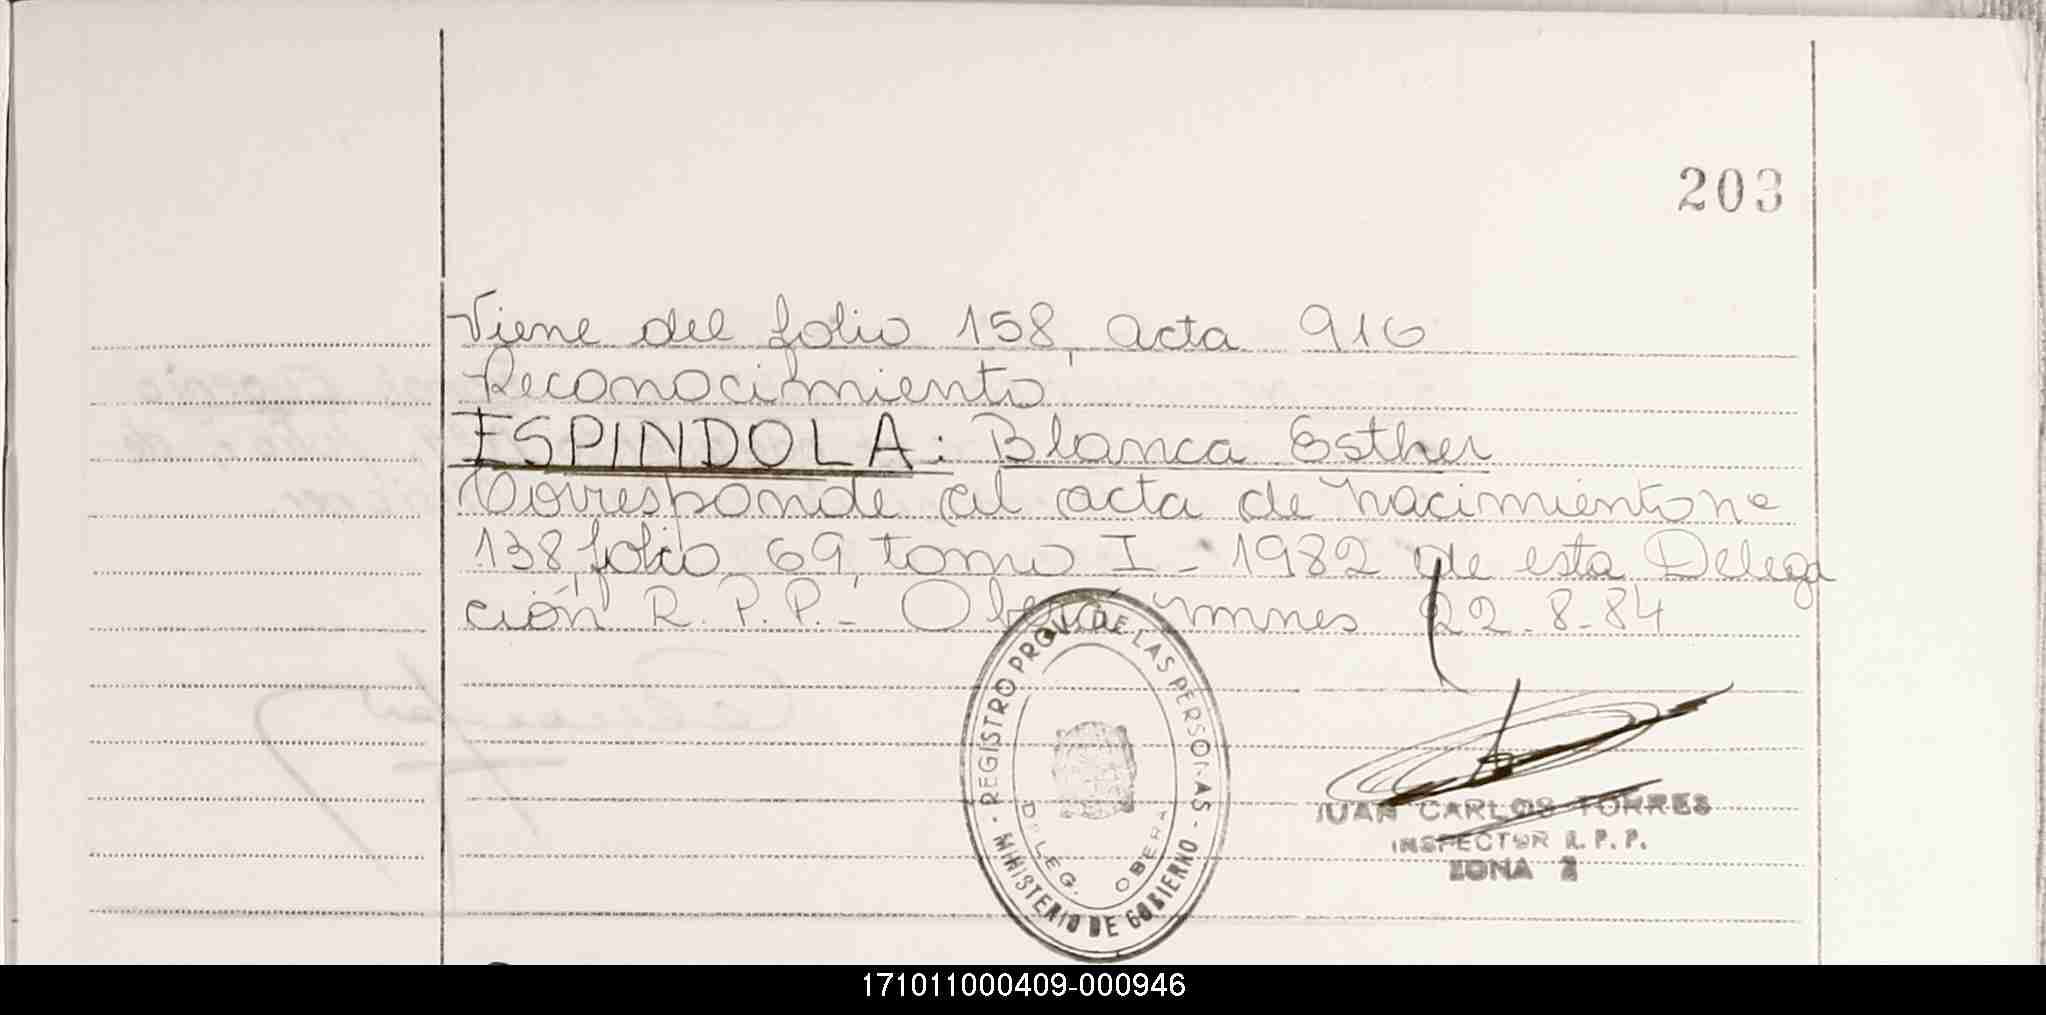 203
Viene del folio 158, acta 916
Reconocimiento
ESPINDOLA: Blanca Esther
Corresponde al acta de nacimiento nº
138, folio 69, tomo I - 1982 de esta Delega
ción R.P.P.- Oberá, Mnes 22.8.84
- REGISTRO PROV. DE LAS PERSONAS -
MINISTERIO DE GOBIERNO
DELEG. OBERA
JUAN CARLOS TORRES
INSPECTOR R.P.P.
ZONA 2
171011000409-000946